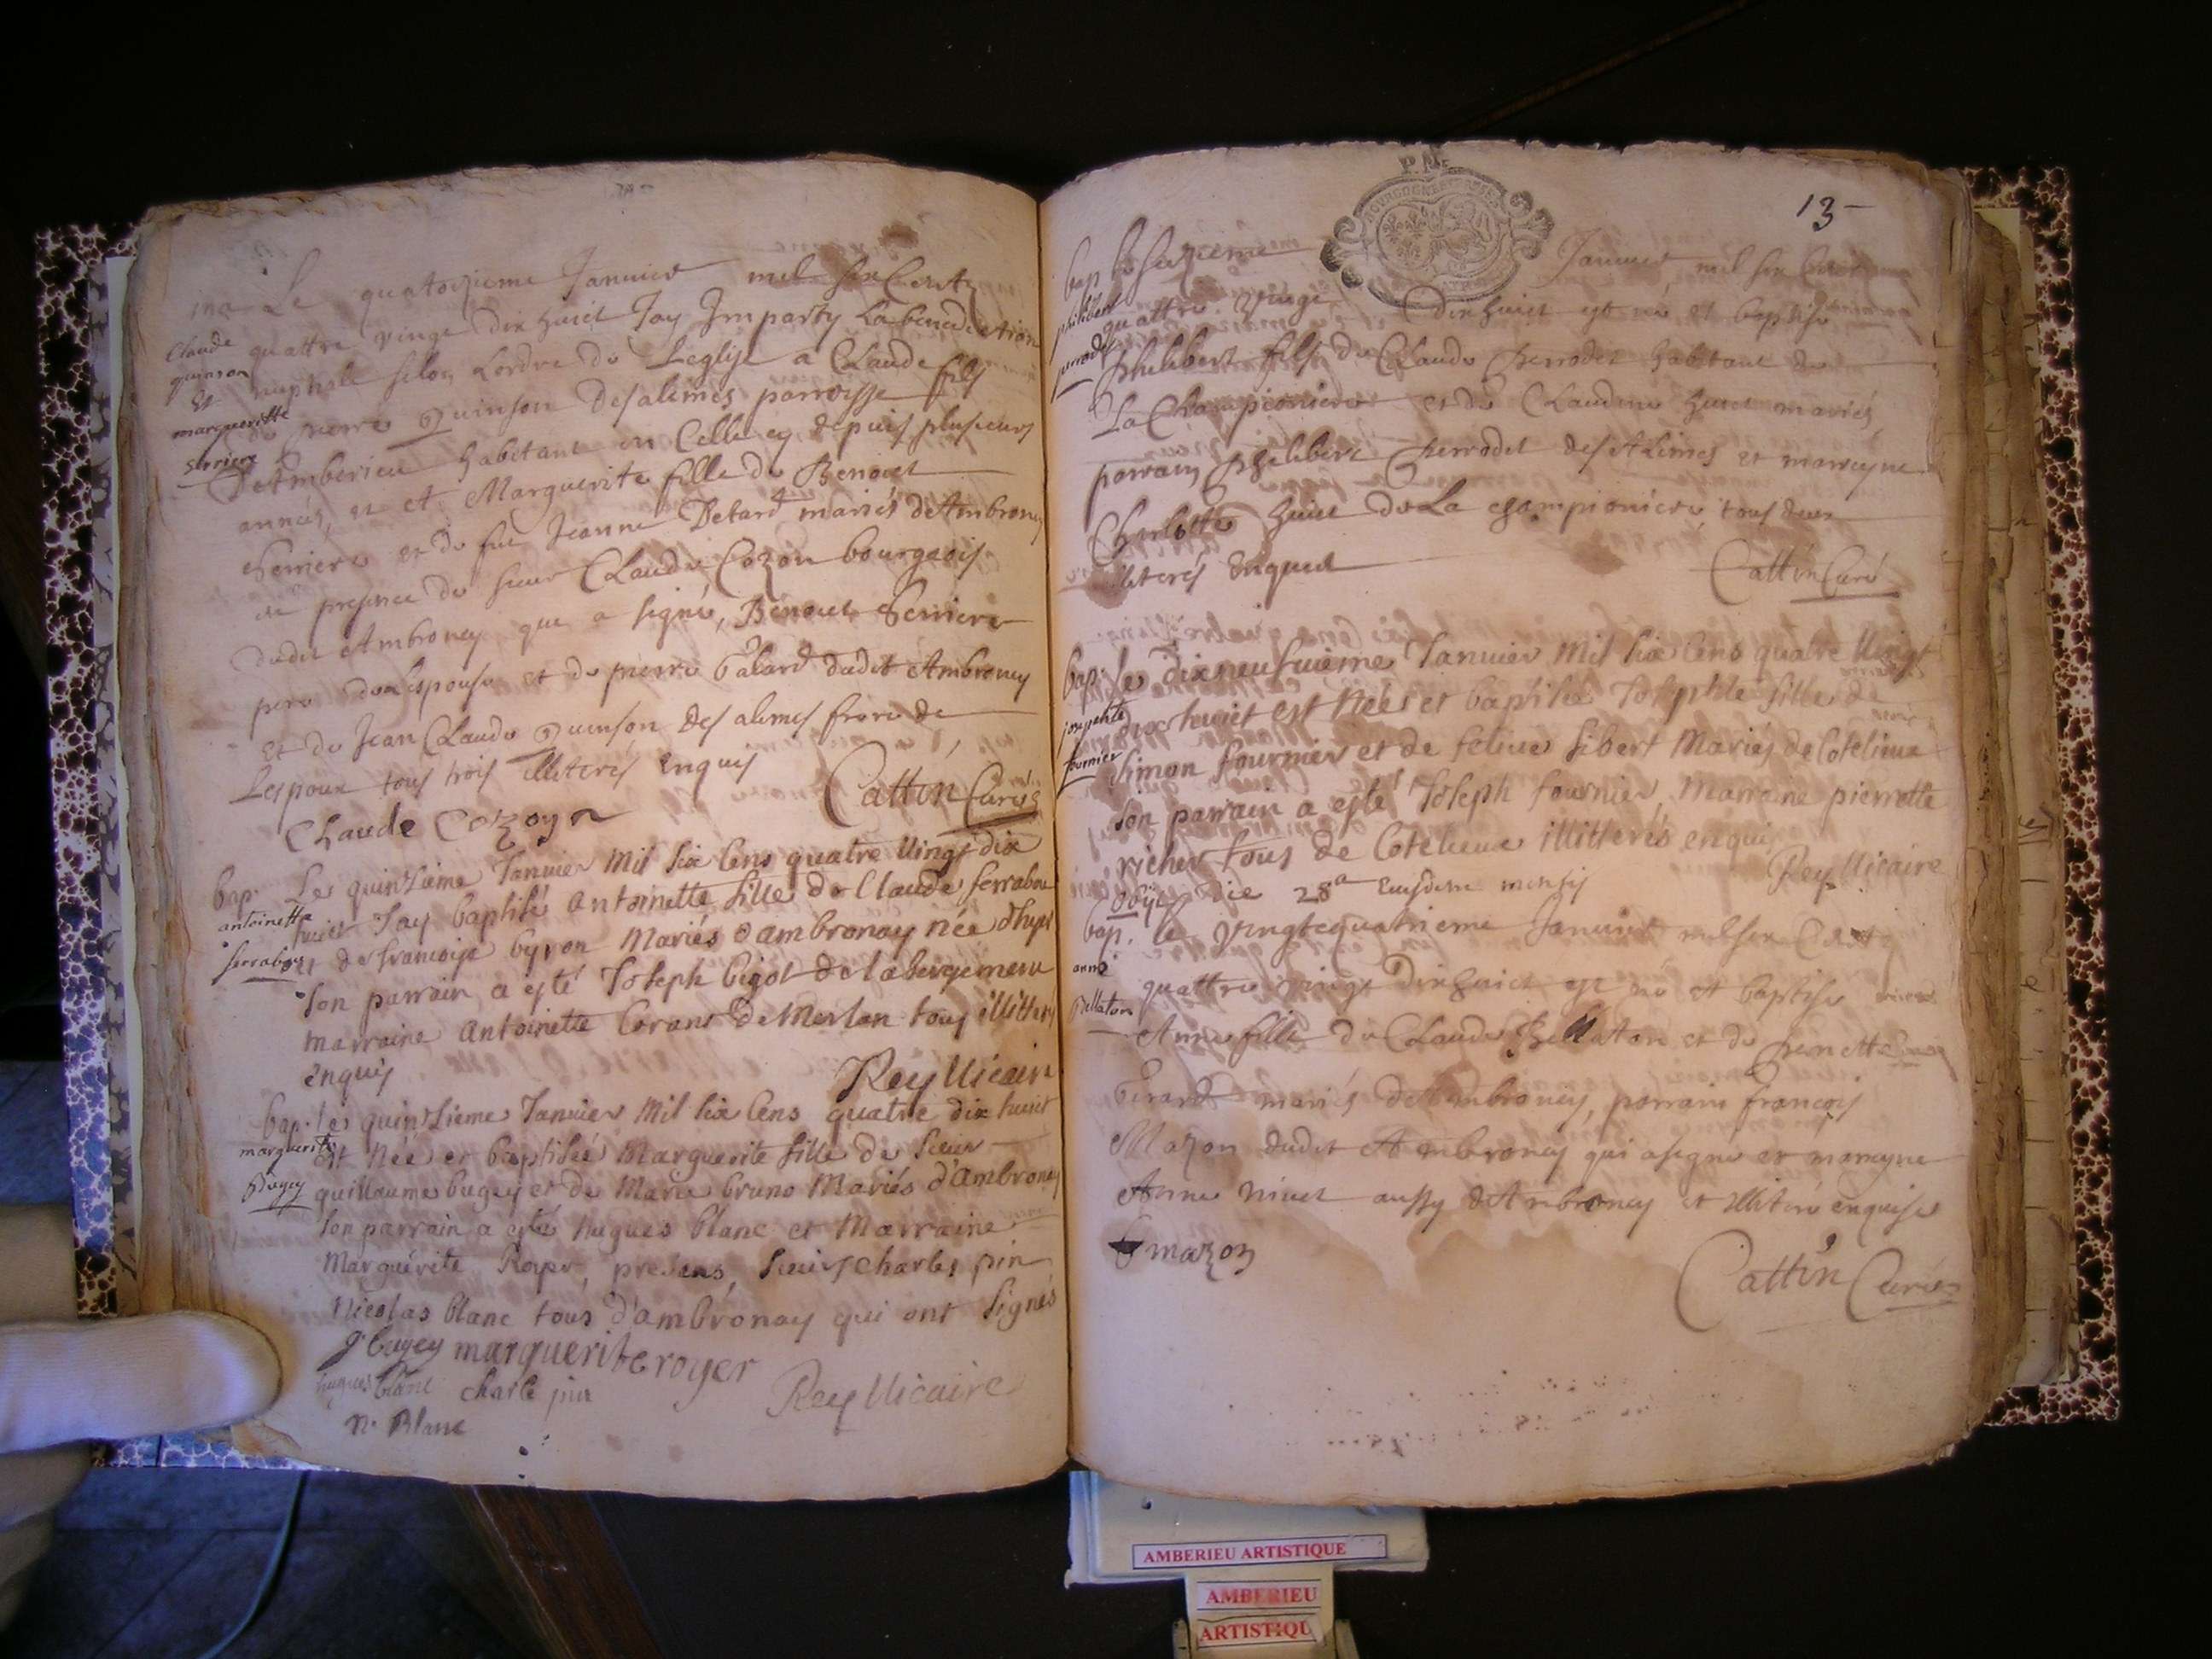 Le quatorzieme Januier mil six Cents
quattre vingt dix huict Jay Imparty La benediction
nuptiale selon Lordre de Leglise a Claude fils
de pierre Quinson des alimes parroisse
Claude
quinson
Et
margueritte
serriere
D'Amberieu habitant en Celle cy depuis plusieurs
années, et Marguerite fille de Benoict
Serriere et de fue Jeanne Betard mariés d'Ambronay
en presence de sieur Claude Cozon bourgeois
dudit Ambronay que a signé, Benoict Serriere
pere de Lespouse et de pierre Palard dudit Ambronay
Et de Jean Claude Quinson des alimes frere de
Lespoux tous trois illiterés Enquis
Cattin Curé
Claude Cozon
bap. Le quinzieme Januier Mil six Cens quatre Vingt dix
huict Jay baptisé antoinette fille de Claude ferrabou
antoinette
ferrabou
et de francoise byron Mariés d'ambronay née d'hyer
son parrain a esté Joseph bigot de labergement
marraine antoinette Corant de Merlan tous illitterés
enquis
Rey Vicaire
bap. Le quinzieme Januier Mil six Cens quatre dix huict
est Née et baptisée Marguerite fille de sieur
marguerite
Bugey
guillaume bugey et de Marie bruno Mariés d'ambronay
son parrain a esté hugues blanc et Marraine
Marguérite Royer, presens, sieurs charles pin
Nicolas blanc tous d'ambronay qui ont signés
g bugey marguerite royer
hugues blanc charle pin
Rey Vicaire
N. Blanc
13
P.N.
bap Le seizieme Januier mil six Cents
quattre vingt dix huict est né et baptisé
philibert
perrodet
Philibert fils de Claude Perrodet habitant de
La Championiere et de Claudine huict mariés
parrain Philibert Perrodet des Alimes et marreyne
Charlotte huict de La championiere, tous deux
illiterés Enquis
Cattin Curé
bap. Le dixneufuieme Januier Mil six Cens quatre Vingt
dix huict est Née et baptisée Josephte fille de
josephte
fournier
Simon fournier et de feliue sibert Mariés de Cotelieue
son parrain a esté Joseph fournier, Marraine pierrette
richer tous de Cotelieue illitterés enquis
Rey Vicaire
obiit die 28a Eiusdem mensis
bap. Le vingtequatrieme Januier mil six Cents
quattre vingt Dix huict est né et baptisé
anne
Bellaton
Anne fille de Claude Bellaton et de Penette
Girard mariés d'Ambronay, parrain francois
Mazon dudit Ambronay qui a signé et mareyne
Anne Ninet aussy d'Ambronay et illiteré enquise
mazon
Cattin Curé
AMBERIEU ARTISTIQUE
AMBERIEU
ARTISTIQU